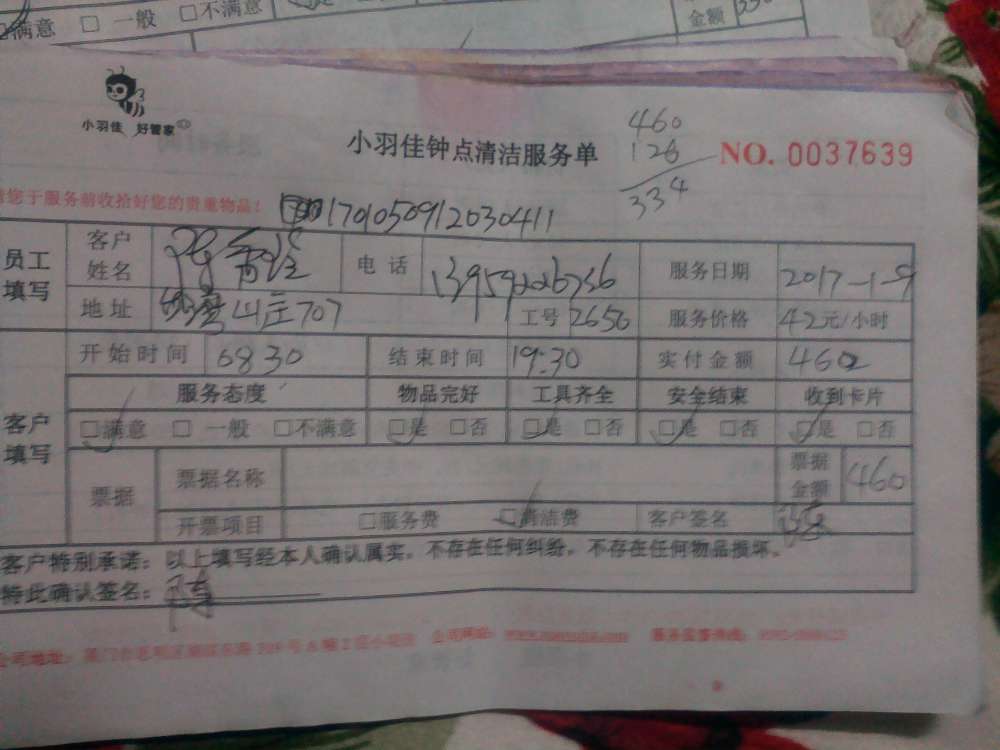 满意 □ 一般 □不满意
金额 330
小羽佳 好管家
小羽佳钟点清洁服务单
460
126
334
NO. 0037639
请您于服务前收拾好您的贵重物品!
1701050912030411
员工填写
客户姓名
电话
服务日期 2017-1-9
地址 山庄707
工号 2656 服务价格 42元/小时
客户填写
开始时间 0830 结束时间 19:30 实付金额 460
服务态度 物品完好 工具齐全 安全结束 收到卡片
□满意 □ 一般 □不满意 □是 □否 □是 □否 □是 □否 □是 □否
票据 票据名称 票据金额 460
开票项目 □服务费 □清洁费 客户签名
客户特别承诺：以上填写经本人确认属实，不存在任何纠纷，不存在任何物品损坏。
特此确认签名：陈
公司地址： 公司网址：